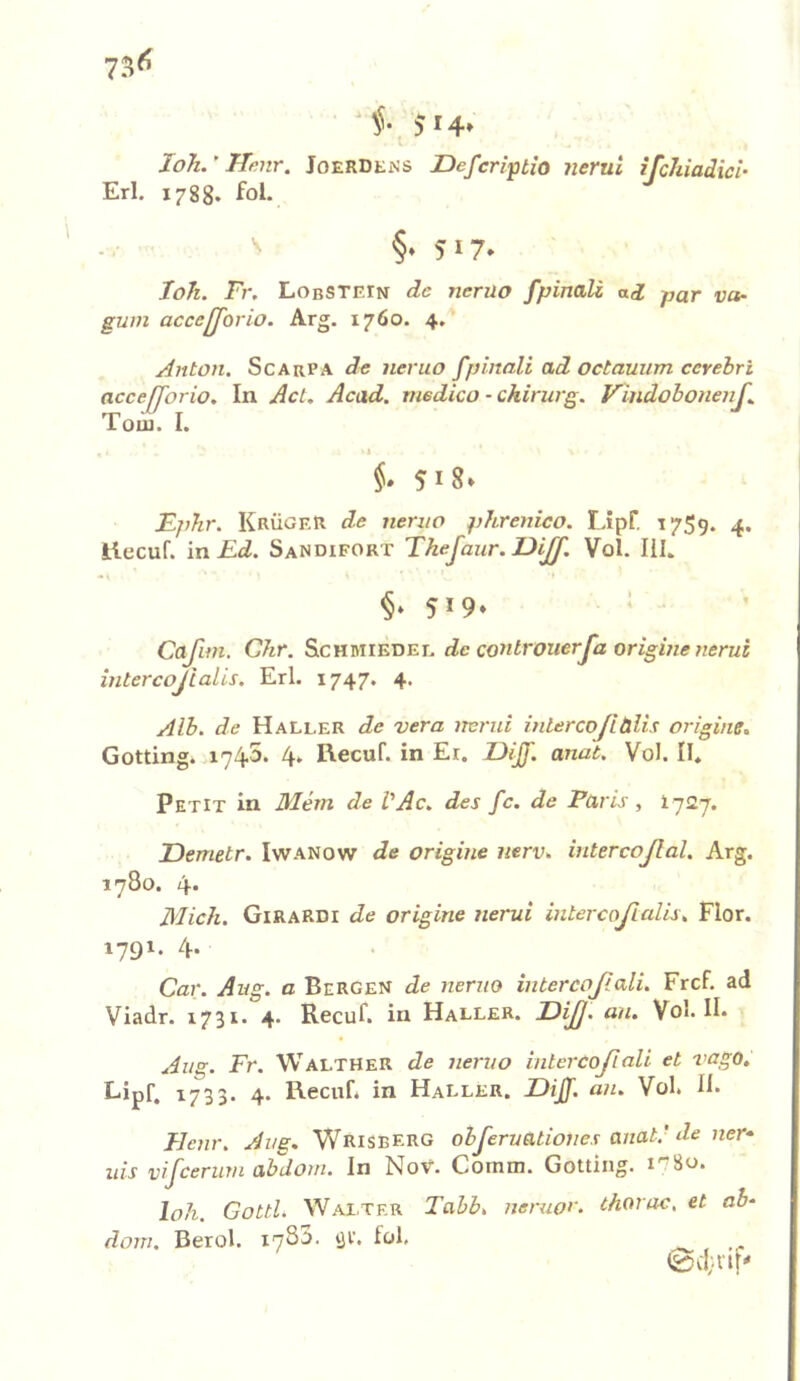 736
§. 514.
Ioh. Henr. JOERDENS Deſcriptio nerui iſchiadici.
Erl. 1788. fol.
§. 517.
Ioh. Fr. LOBSTEIN de neruo ſpinali ad par va-
gum acceſſorio. Arg. 1760. 4.
Anton. SCARPA de neruo ſpinali ad octauum cerebri
acceſſorio. In Act. Acad. medico-chirurg. Vindobonenſ.
Tom. I.
§. 518.
Ephr. KRÜGER de neruo phrenico. Lipſ. 1759. 4.
Recuſ. in Ed. SANDIFORT Theſaur. Diſſ. Vol. III.
§. 519.
Caſim. Chr. SCHMIEDEL de controuerſa origine nerui
intercoſtalis. Erl. 1747. 4.
Alb. de HALLER de vera nerui intercoſtalis origine.
Gotting. 1743. 4. Recuſ. in Ei. Diſſ. anat. Vol. II.
PETIT in Mém de l'Ac. des ſc. de Paris, 1727.
Demetr. IWANOW de origine nerv. intercoſtal. Arg.
1780. 4.
Mich. GIRARDI de origine nerui intercoſtalis. Flor.
1791. 4.
Car. Aug. a BERGEN de neruo intercoſtali. Frcf. ad
Viadr. 1731. 4. Recuſ. in HALLER. Diſſ. an. Vol. II.
Aug. Fr. WALTHER de neruo intercoſtali et vago.
Lipſ. 1733. 4. Recuſ. in HALLER. Diſſ. an. Vol. II.
Henr. Aug. WRISBERG obſeruationes anat. de ner-
uis viſcerum abdom. In Nov. Comm. Gotting. 1780.
Ioh. Gottl. WALTER Tabb. neruor. thorac. et ab-
dom. Berol. 1783. gr. fol.
Schrif-